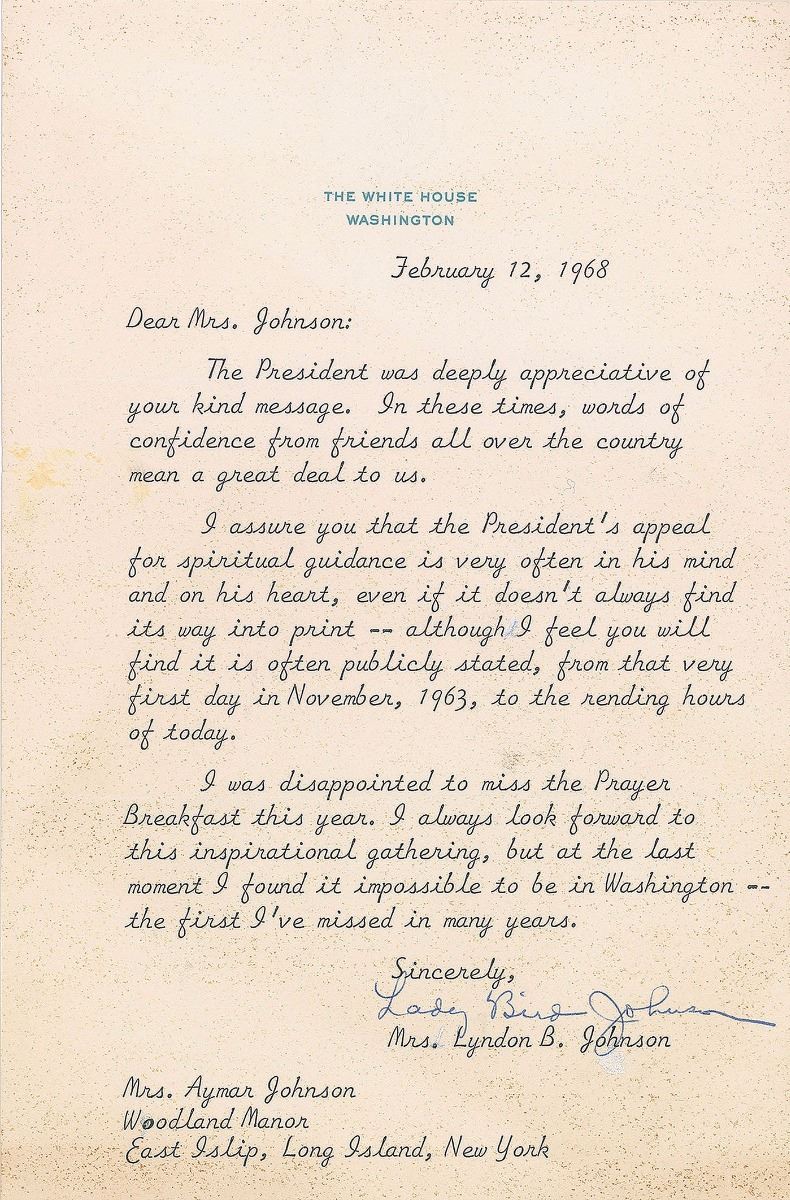 THE WHITE HOUSE
WASHINGTON
February 12, 1968
Dear Mrs. Johnson:
The President was deeply appreciative of
your kind message. In these times, words of
confidence from friends all over the country
mean a great deal to us.
I assure you that the President's appeal
for spiritual guidance is very often in his mind
and on his heart, even if it doesn't always find
its way into print -- although I feel you will
find it is often publicly stated, from that very
first day in November, 1963, to the rending hours
of today.
I was disappointed to miss the Prayer
Breakfast this year. I always look forward to
this inspirational gathering, but at the last
moment I found it impossible to be in Washington --
the first I've missed in many years.
Sincerely,
Lady Bird Johnson
Mrs. Lyndon B. Johnson
Mrs. Aymar Johnson
Woodland Manor
East Islip, Long Island, New York